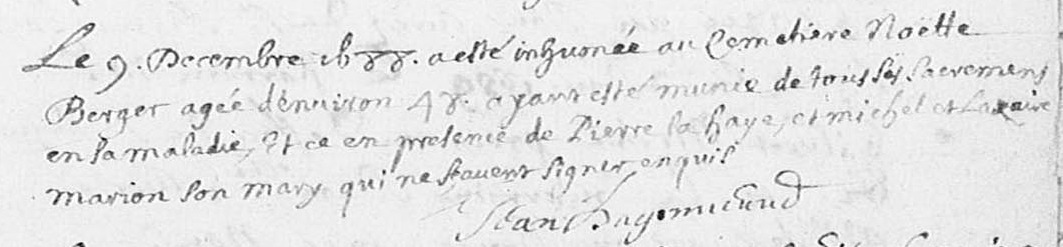 Le 9. Decembre 1688. a esté inhumée au Cemetiere Noëlle
Berger agée d'environ 48. ayant esté munie de tous ses sacremens
en sa maladie, Et ce en presence de Pierre la haye, et michel et Lazaire
marion son mary qui ne scavent signer enquis
Jean